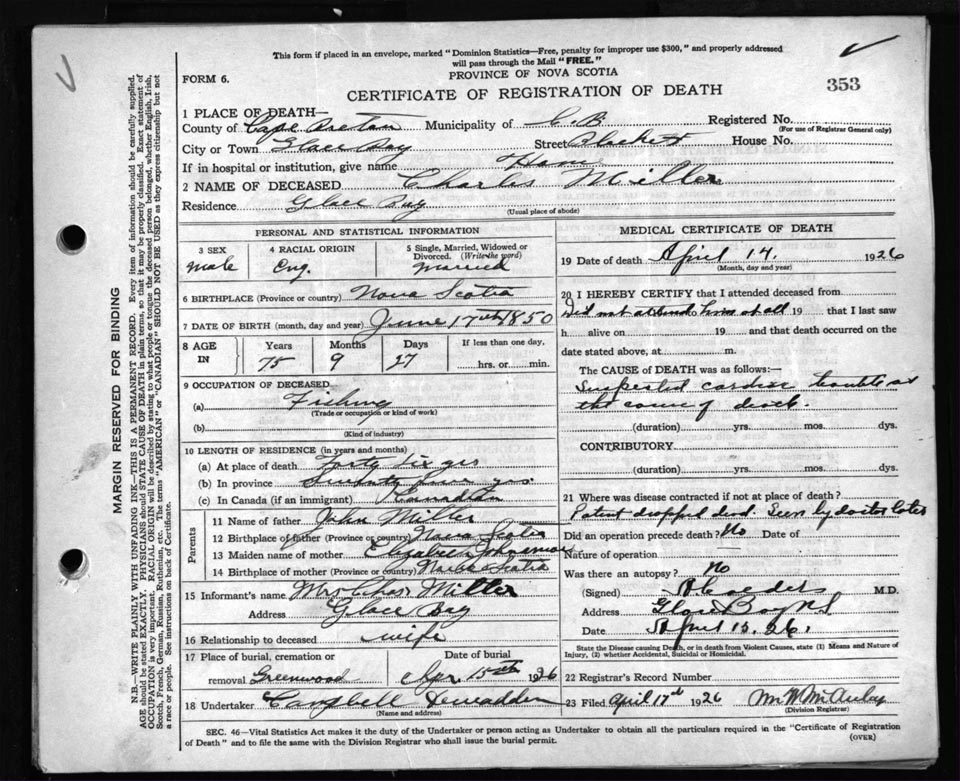 This form if placed in an envelope, marked "Dominion Statistics—Free, penalty for improper use $300," and properly addressed
will pass through the Mail "FREE."
FORM 6.
PROVINCE OF NOVA SCOTIA
353
CERTIFICATE OF REGISTRATION OF DEATH
1 PLACE OF DEATH—
County of Cape Breton Municipality of C. B. Registered No.
(For use of Registrar General only)
City or Town Glace Bay Street House No.
If in hospital or institution, give name Home
2 NAME OF DECEASED Charles Miller
Residence Glace Bay
(Usual place of abode)
PERSONAL AND STATISTICAL INFORMATION
3 SEX
male
4 RACIAL ORIGIN
Eng.
5 Single, Married, Widowed or
Divorced. (Write the word)
Married
6 BIRTHPLACE (Province or country) Nova Scotia
7 DATE OF BIRTH (month, day and year) June 17th 1850
8 AGE IN
Years Months Days If less than one day,
75 9 27 hrs. or min.
9 OCCUPATION OF DECEASED
(a) Fishing
(Trade or occupation or kind of work)
(b)
(Kind of industry)
10 LENGTH OF RESIDENCE (in years and months)
(a) At place of death Forty six yrs
(b) In province Seventy four yrs.
(c) In Canada (if an immigrant) Canadian
Parents
11 Name of father John Miller
12 Birthplace of father (Province or country) Nova Scotia
13 Maiden name of mother Elizabeth
14 Birthplace of mother (Province or country) Nova Scotia
15 Informant's name Mrs Chas Miller
Address Glace Bay
16 Relationship to deceased wife
17 Place of burial, cremation or Date of burial
removal Greenwood Apr. 15th 1926
18 Undertaker Campbell
(Name and address)
MEDICAL CERTIFICATE OF DEATH
19 Date of death April 14. 1926
(Month, day and year)
20 I HEREBY CERTIFY that I attended deceased from
Did not attend him at all 19 that I last saw
h alive on 19 and that death occurred on the
date stated above, at m.
The CAUSE OF DEATH was as follows:—
Suspected cardiac trouble as
the cause of death.
(duration) yrs. mos. dys.
CONTRIBUTORY
(duration) yrs. mos. dys.
21 Where was disease contracted if not at place of death?
Patient dropped dead. Seen by doctor later
Did an operation precede death? No Date of
Nature of operation
Was there an autopsy? No
(Signed) M.D.
Address Glace Bay N.S.
Date April 15. 26.
State the Disease causing Death, or in death from Violent Causes, state (1) Means and Nature of
Injury, (2) whether Accidental, Suicidal or Homicidal.
22 Registrar's Record Number
23 Filed April 17th 1926
(Division Registrar)
SEC. 46—Vital Statistics Act makes it the duty of the Undertaker or person acting as Undertaker to obtain all the particulars required in the "Certificate of Registration
of Death" and to file the same with the Division Registrar who shall issue the burial permit.
(OVER)
MARGIN RESERVED FOR BINDING
N.B.—WRITE PLAINLY WITH UNFADING INK—THIS IS A PERMANENT RECORD. Every item of information should be carefully supplied.
AGE should be stated EXACTLY. PHYSICIANS should STATE CAUSE OF DEATH in plain terms, so that it may be properly classified. Exact statement of
OCCUPATION is very important. RACIAL ORIGIN will be described by stating to what people or tongue the deceased person belonged, whether English, Irish,
Scotch, French, German, Russian, Ruthenian, etc. The terms "AMERICAN" or "CANADIAN" SHOULD NOT BE USED as they express citizenship but not
a race or people. See instructions on back of Certificate.